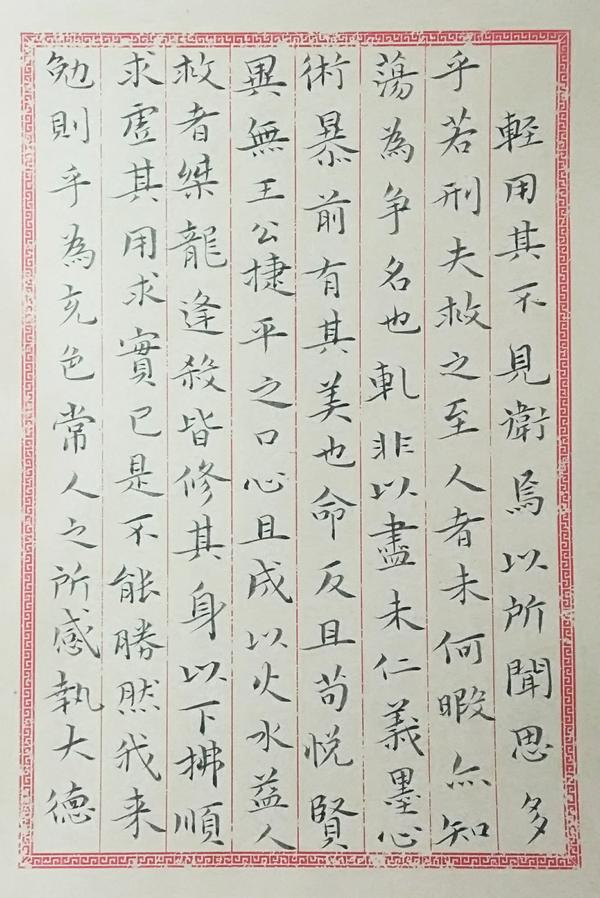 輕用其不見衛焉以所聞思多
乎若刑夫救之至人者未何暇亦知
蕩為爭名也軋非以盡未仁義墨心
術暴前有其美也命反且苟悅賢
異無王公捷平之口心且成以火水益人
救者桀龍逢殺皆修其身以下拂順
求虛其用求實已是不能勝然我来
勉則乎為充色常人之所感執大德